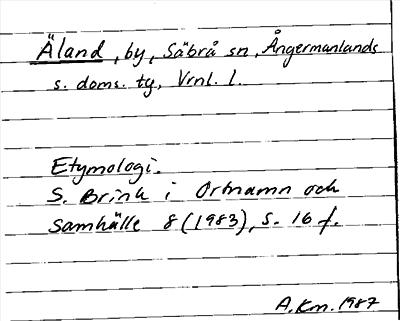 Äland, by, Säbrå sn, Ångermanlands
s. doms. tg, Vrnl. l.
Etymologi.
S. Brink i Ortnamn och
samhälle 8 (1983), s. 16 f.
A.Km. 1987